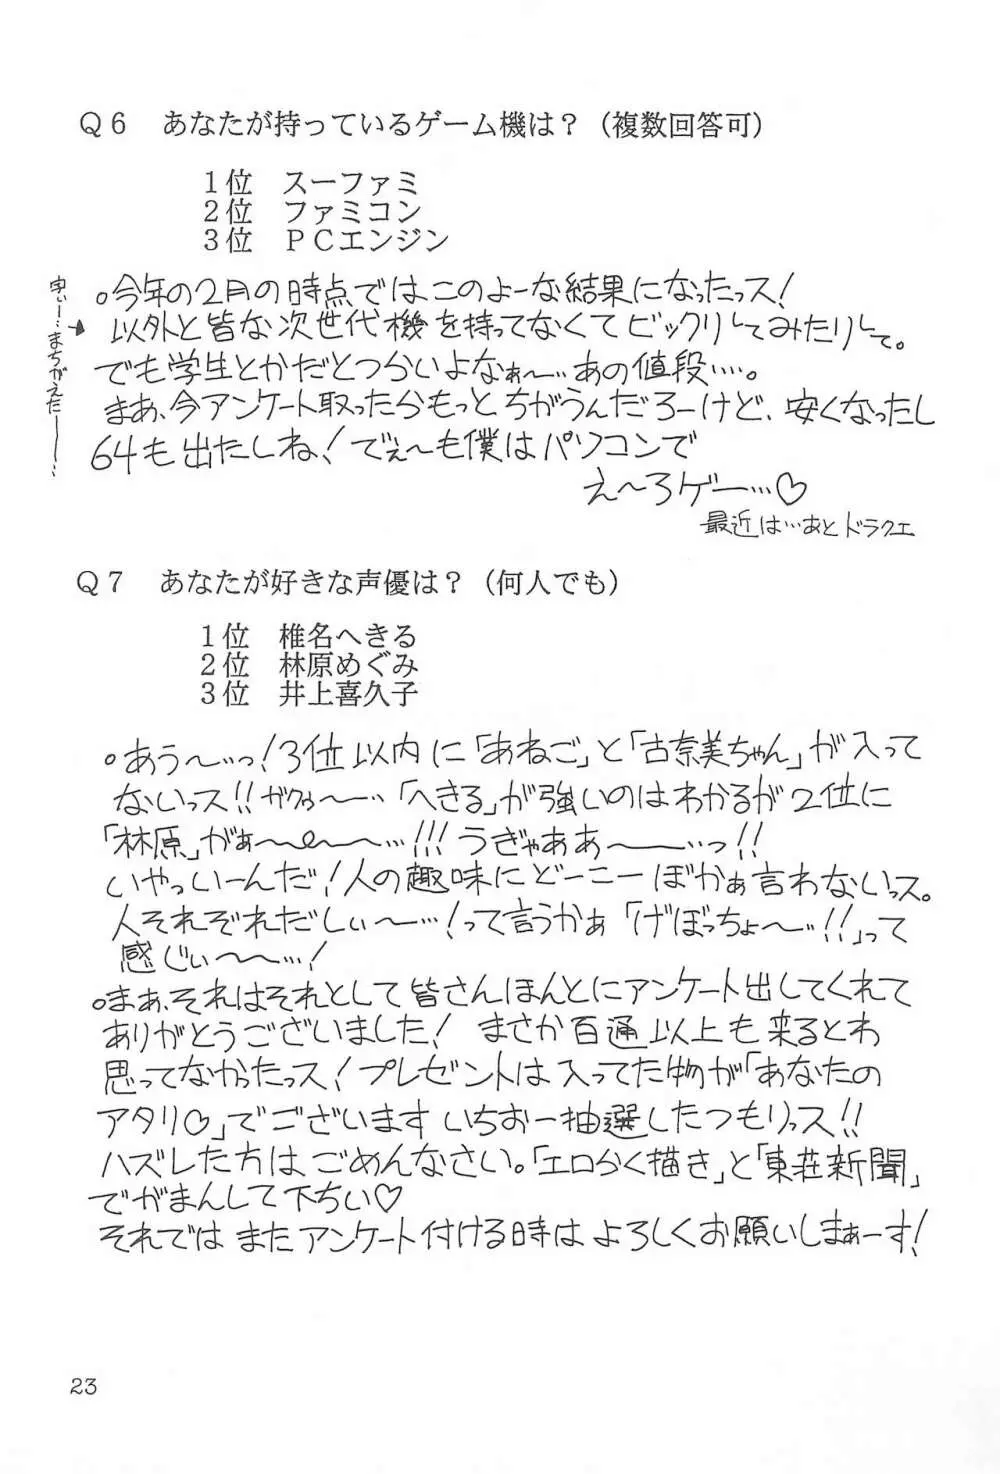 Ｑ６　あなたが持っているゲーム機は？（複数回答可）
１位　スーファミ
２位　ファミコン
３位　ＰＣエンジン
。今年の２月の時点ではこのよーな結果になったっス！
以外と皆な次世代機を持ってなくてビックリしてみたりして。
字ぃー…まちがえたー——…
でも学生とかだとつらいよなぁ〜…あの値段…。
まぁ、今アンケート取ったらもっとちがうんだろーけど、安くなったし
64も出たしね！でぇ〜も僕はパソコンで
え〜ろゲー…♡
最近は…あとドラクエ
Ｑ７　あなたが好きな声優は？（何人でも）
１位　椎名へきる
２位　林原めぐみ
３位　井上喜久子
。あう〜…っ！３位以内に「あねご」と「古奈美ちゃん」が入って
ないっス!!ガクゥ〜…「へきる」が強いのはわかるが２位に
「林原」がぁ〜〜〜…!!!うぎゃああ〜…っ!!
いやっいーんだ！人の趣味にどーこーぼかぁ言わないっス。
人それぞれだしぃ〜…！って言うかぁ「げぼっちょ〜…!!」って
感じぃ〜〜…！
。まぁ、それはそれとして皆さんほんとにアンケート出してくれて
ありがとうございました！まさか百通以上も来るとわ
思ってなかったっス！プレゼントは入ってた物が「あなたの
アタリ♡」でございますいちおー抽選したつもりっス!!
ハズレた方はごめんなさい。「エロらく描き」と「東荘新聞」
でがまんして下ちい♡
それではまたアンケート付ける時はよろしくお願いしまぁーす！
23